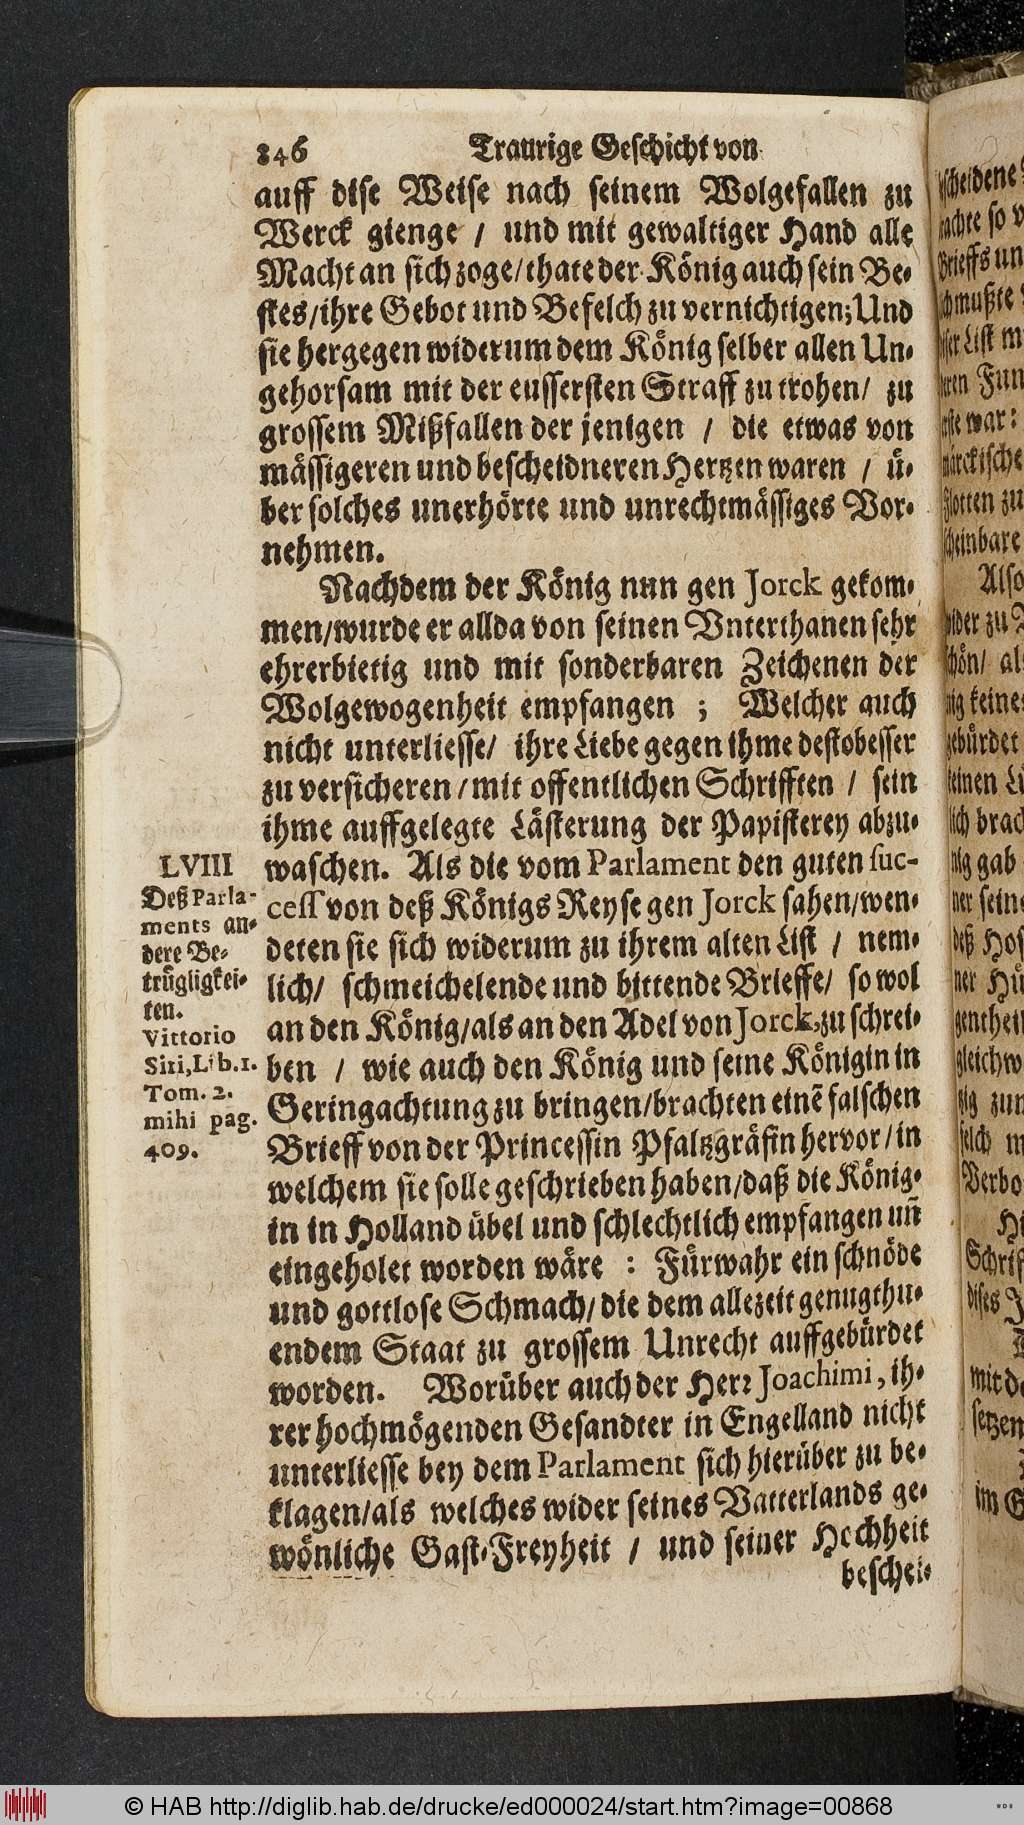 846 Traurige Geschicht von
auff dise Weise nach seinem Wolgefallen zu
Werck gienge / und mit gewaltiger Hand alle
Macht an sich zoge/thate der König auch sein Be-
stes/ihre Gebot und Befelch zu vernichtigen; Und
sie hergegen widerum dem König selber allen Un-
gehorsam mit der eussersten Straff zu trohen/ zu
grossem Mißfallen der jenigen / die etwas von
mässigeren und bescheidneren Hertzen waren / ü-
ber solches unerhörte und unrechtmässiges Vor-
nehmen.
Nachdem der König nun gen Jorck gekom-
men/wurde er allda von seinen Vnterthanen sehr
ehrerbietig und mit sonderbaren Zeichenen der
Wolgewogenheit empfangen ; Welcher auch
nicht unterliesse/ ihre Liebe gegen ihme destobesser
zu versicheren/mit offentlichen Schrifften / sein
ihme auffgelegte Lästerung der Papisterey abzu-
waschen. Als die vom Parlament den guten suc-
cess von deß Königs Reyse gen Jorck sahen/wen-
deten sie sich widerum zu ihrem alten List / nem-
lich/ schmeichelende und bittende Brieffe/ so wol
an den König/als an den Adel von Jorck, zu schrei-
ben / wie auch den König und seine Königin in
Geringachtung zu bringen/brachten einẽ falschen
Brieff von der Princessin Pfaltzgräfin hervor/in
welchem sie solle geschrieben haben/daß die König-
in in Holland übel und schlechtlich empfangen uñ
eingeholet worden wäre : Fürwahr ein schnöde
und gottlose Schmach/die dem allezeit genugthu-
endem Staat zu grossem Unrecht auffgebürdet
worden. Worüber auch der Herr Joachimi, ih-
rer hochmögenden Gesandter in Engelland nicht
unterliesse bey dem Parlament sich hierüber zu be-
klagen/als welches wider seines Vatterlands ge-
wönliche Gast-Freyheit / und seiner Hochheit
beschei-
LVIII
Deß Parla-
ments an-
dere Be-
trügligkei-
ten.
Vittorio
Siri, Lib.1.
Tom. 2.
mihi pag.
409.
© HAB http://diglib.hab.de/drucke/ed000024/start.htm?image=00868